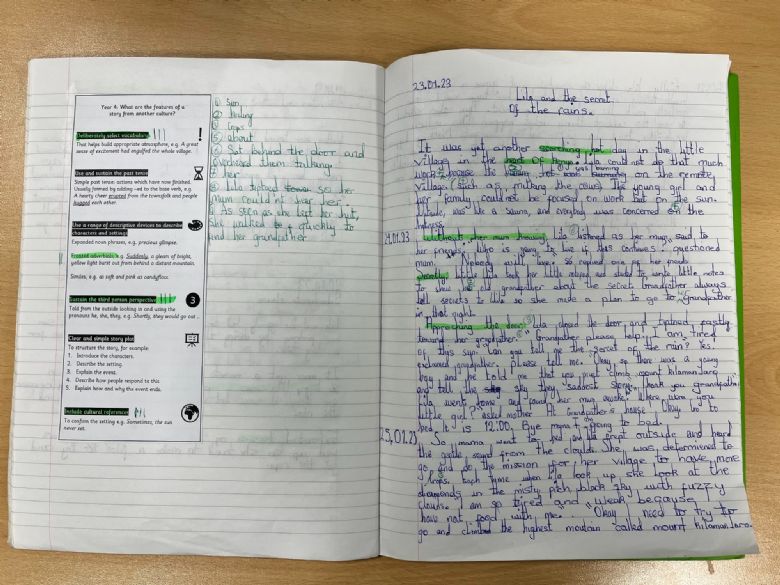 Year 4: What are the features of a
story from another culture?
Deliberately select vocabulary
That helps build appropriate atmosphere, e.g. A great
sense of excitement had engulfed the whole village.
Use and sustain the past tense
Simple past tense: actions which have now finished.
Usually formed by adding –ed to the base verb, e.g.
A hearty cheer erupted from the townsfolk and people
hugged each other.
Use a range of descriptive devices to describe
characters and settings
Expanded noun phrases, e.g. precious glimpse.
Fronted adverbials e.g. Suddenly, a gleam of bright,
yellow light burst out from behind a distant mountain.
Similes, e.g. as soft and pink as candyfloss.
Sustain the third person perspective
3
Told from the outside looking in and using the
pronouns he, she, they, e.g. Shortly, they would go out ..
Clear and simple story plot
To structure the story, for example:
1. Introduce the characters.
2. Describe the setting.
3. Explain the event.
4. Describe how people respond to this.
5. Explain how and why the event ends.
Include cultural references
To confirm the setting e.g. Sometimes, the sun
never set.
① Sun,
②
③ crops
⑤ about
Sat behind the door and
overheard them talking.
7 her
⑧ Lila tiptoed so her
mum could nt hear her.
As soon as she left her hut,
she walked quickly to
and her grandfather
23.01.23
Lila and the secret
Of the rains.
It was yet another scorching hot day in the little
village in the Of Kenya. Lila could not do that much
work because the sun was burning on the remote
village (such as, milking the cows). The young girl and
her family could not be focused on work but on the sun.
was like a sauna, and everybody was concerned on the
24.01.23
Without her mum knowing, Lila listened as her mum said to
her friends, who is going to live if this continues, questioned
mum. Nobody will replied one of her friends
Shortly, little Lila took her little and started to write little notes
to show her old grandfather about the secret. Grandfather always
tell secrets to Lila so she made a plan to go to grandfather
in that night.
Approaching the door, Lila closed the door and tiptoed
toward her grandfather. "Grandfather please help. I am tired
of this sun. Can you tell me the secret of the rain? Yes!
exclaimed grandfather. Please tell me. Okay so there was a young
boy and he told me that you must climb mount kilamanjaro
and tell the sky the saddest story. Thank you grandfather
Lila went home and found her mum awake. Where were you
little girl? asked mother. At Grandfather's house. Okay, Go to
bed. It is 12:00. Bye mama I going to bed.
25.01.23
So mama went to bed and Lila crept outside and heard
the gentle sound from the clouds. She was determined to
go and do the mission for her village to have more
crops. Each time when Lila look up she look at the
diamonds in the misty pich black sky with fuzzy
clouds. I am so tired and weak because I
have not food with me. "Okay I need to try to
go and climbed the highest moutain called mount kilamanjaro.